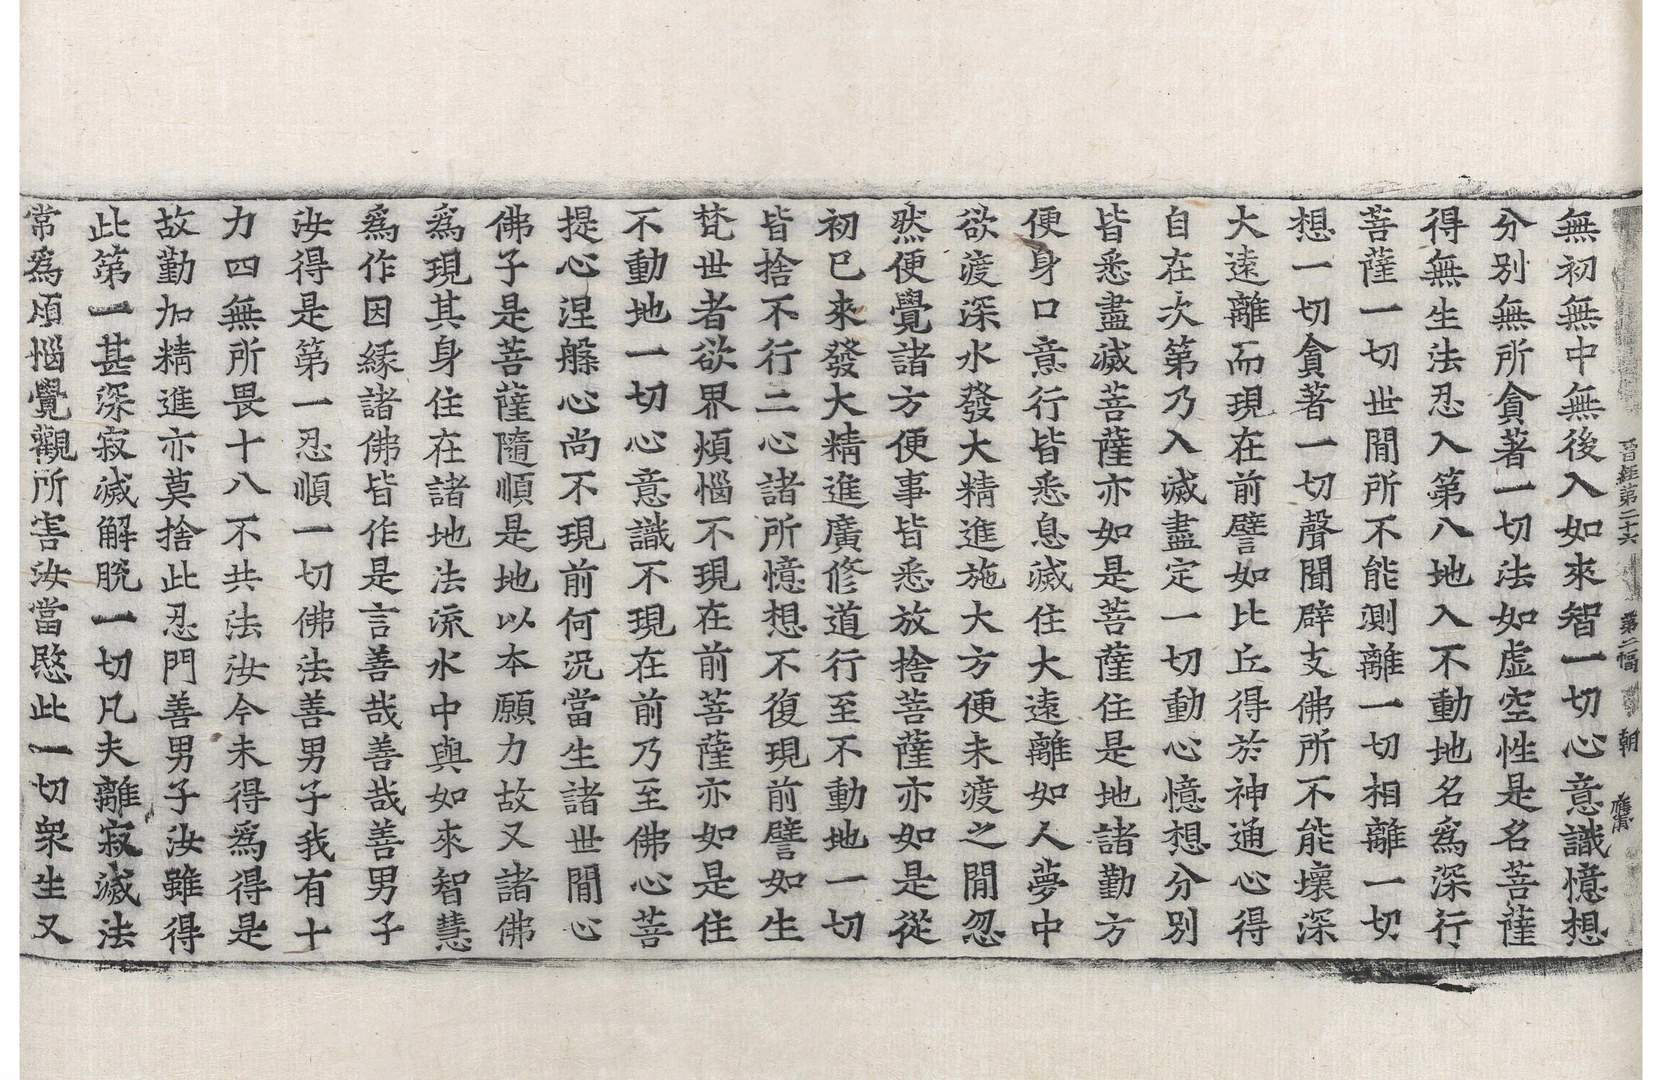 晉經第二十六 第二幅 朝
無初無中無後入如來智一切心意識憶想
分別無所貪著一切法如虛空性是名菩薩
得無生法忍入第八地入不動地名爲深行
菩薩一切世閒所不能測離一切相離一切
想一切貪著一切聲聞辟支佛所不能壞深
大遠離而現在前譬如比丘得於神通心得
自在次第乃入滅盡定一切動心憶想分別
皆悉盡滅菩薩亦如是菩薩住是地諸勤方
便身口意行皆悉息滅住大遠離如人夢中
欲渡深水發大精進施大方便未渡之閒忽
然便覺諸方便事皆悉放捨菩薩亦如是從
初已來發大精進廣修道行至不動地一切
皆捨不行二心諸所憶想不復現前譬如生
梵世者欲界煩惱不現在前菩薩亦如是住
不動地一切心意識不現在前乃至佛心菩
提心涅槃心尚不現前何況當生諸世閒心
佛子是菩薩隨順是地以本願力故又諸佛
爲現其身住在諸地法流水中與如來智慧
爲作因緣諸佛皆作是言善哉善哉善男子
汝得是第一忍順一切佛法善男子我有十
力四無所畏十八不共法汝今未得爲得是
故勤加精進亦莫捨此忍門善男子汝雖得
此第一甚深寂滅解脫一切凡夫離寂滅法
常爲煩惱覺觀所害汝當愍此一切衆生又